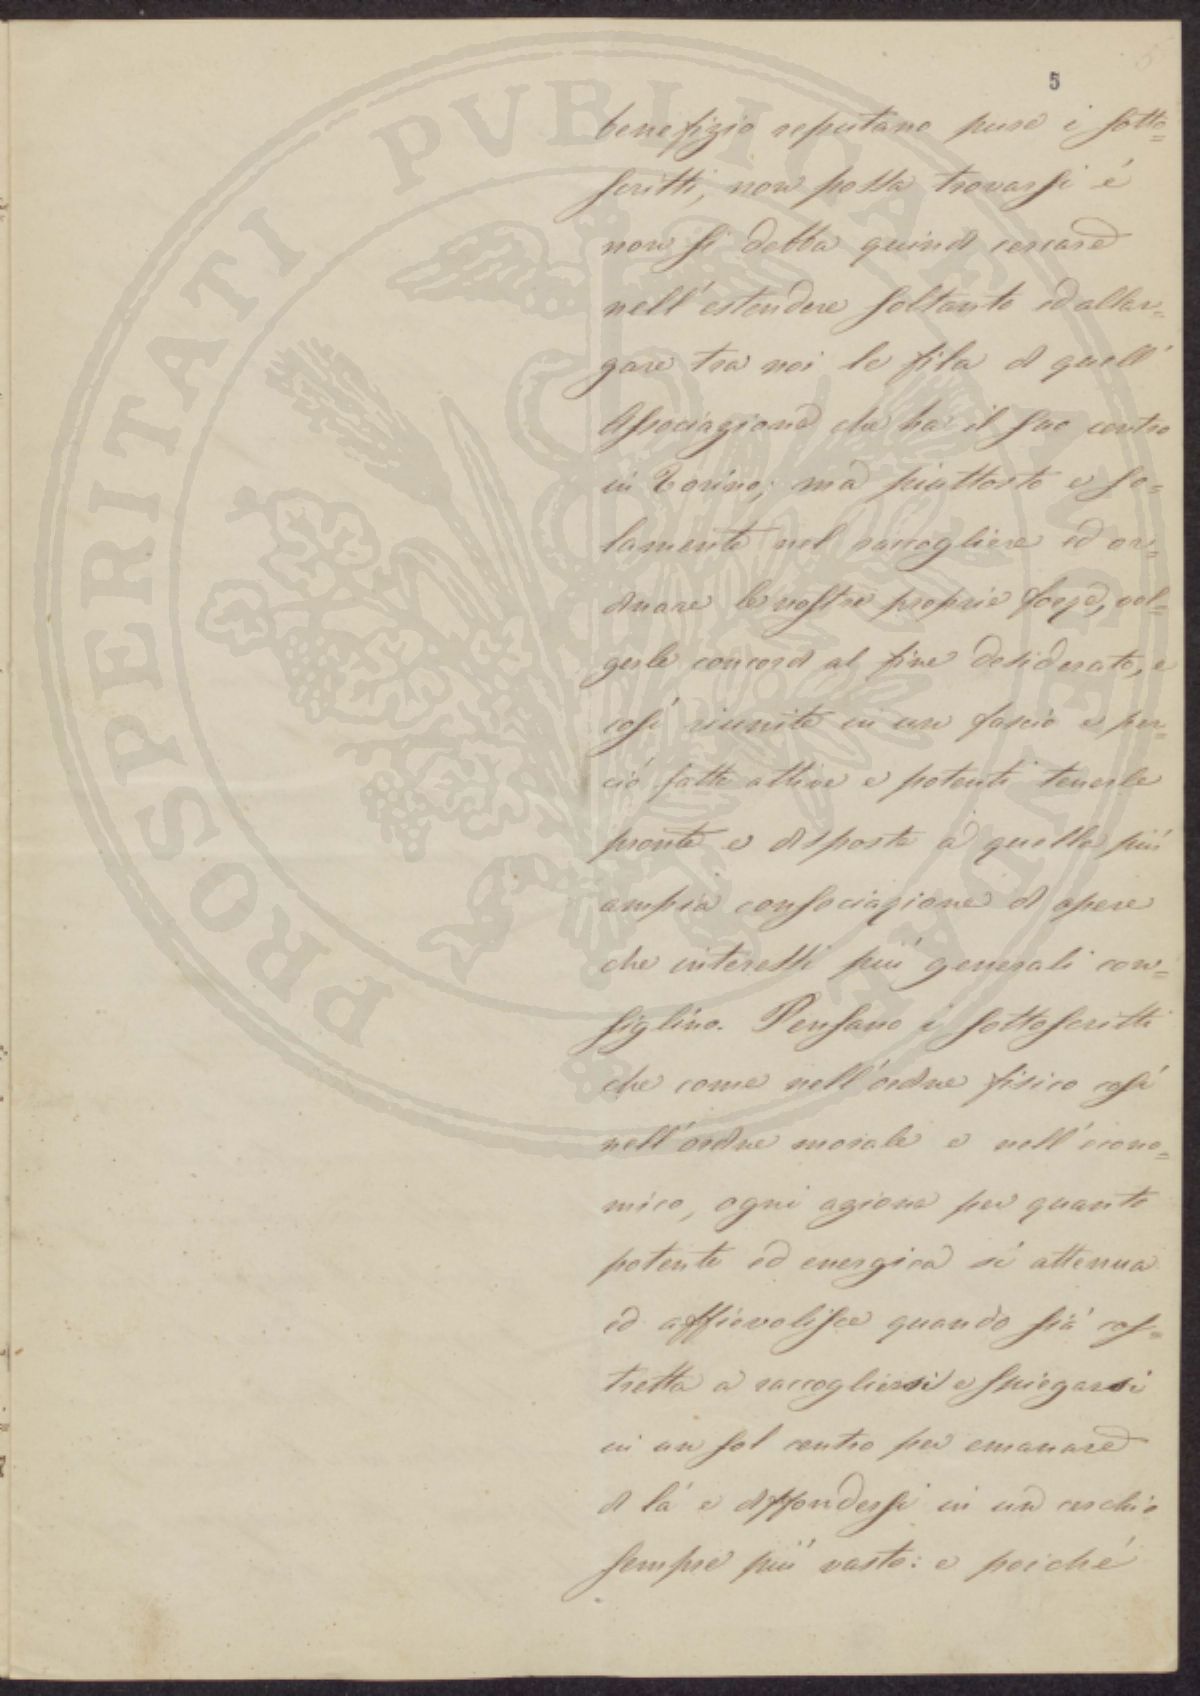 5
benefizio reputano pure i sotto=
scritti, non possa trovarsi é
non si debba quindi cercare
nell'estendere soltanto ed allar=
gare tra noi le fila di quell'
Associazione che ha il suo centro
in Torino; ma piuttosto e so=
lamente nel raccogliere ed or=
dinare le nostre proprie forze, vol=
gerle concordi al fine desiderato, e
cosí riunite in un fascio e per=
ció fatte attive e potenti tenerle
pronte e disposte a quella piú
ampia consociazione di opere
che interessi piú generali con=
siglino. Pensano i sottoscritti
che come nell'ordine fisico cosí
nell'ordine morale e nell'econo=
mico, ogni azione per quanto
potente ed energica si attenua
ed affievolisce quando sia cos=
tretta a raccogliersi e spiegarsi
in un sol centro per emanare
di lá e diffondersi in un cerchio
sempre piú vasto: e poiché
PROSPERITATI PVBLICAE AVGENDAE